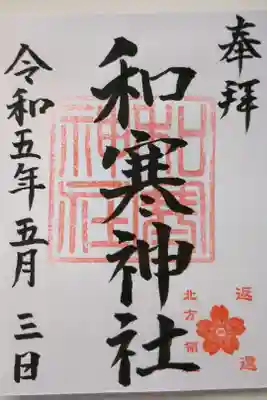 奉拝
和寒神社
和寒神社
令和五年五月三日
北方領
返還